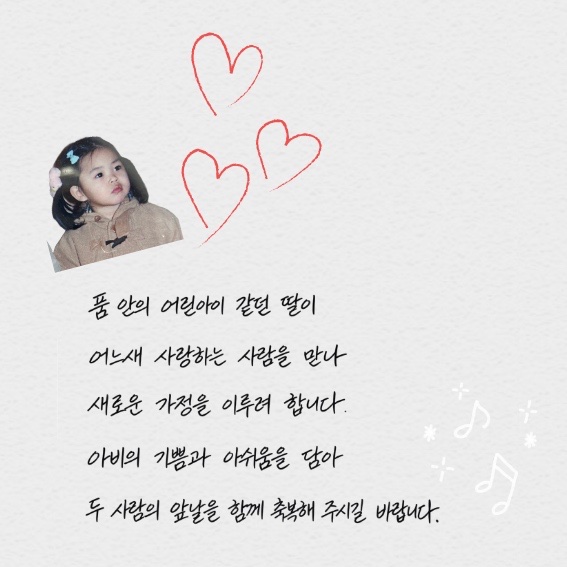 품 안의 어린아이 같던 딸이
어느새 사랑하는 사람을 만나
새로운 가정을 이루려 합니다.
아비의 기쁨과 아쉬움을 담아
두 사람의 앞날을 함께 축복해 주시길 바랍니다.